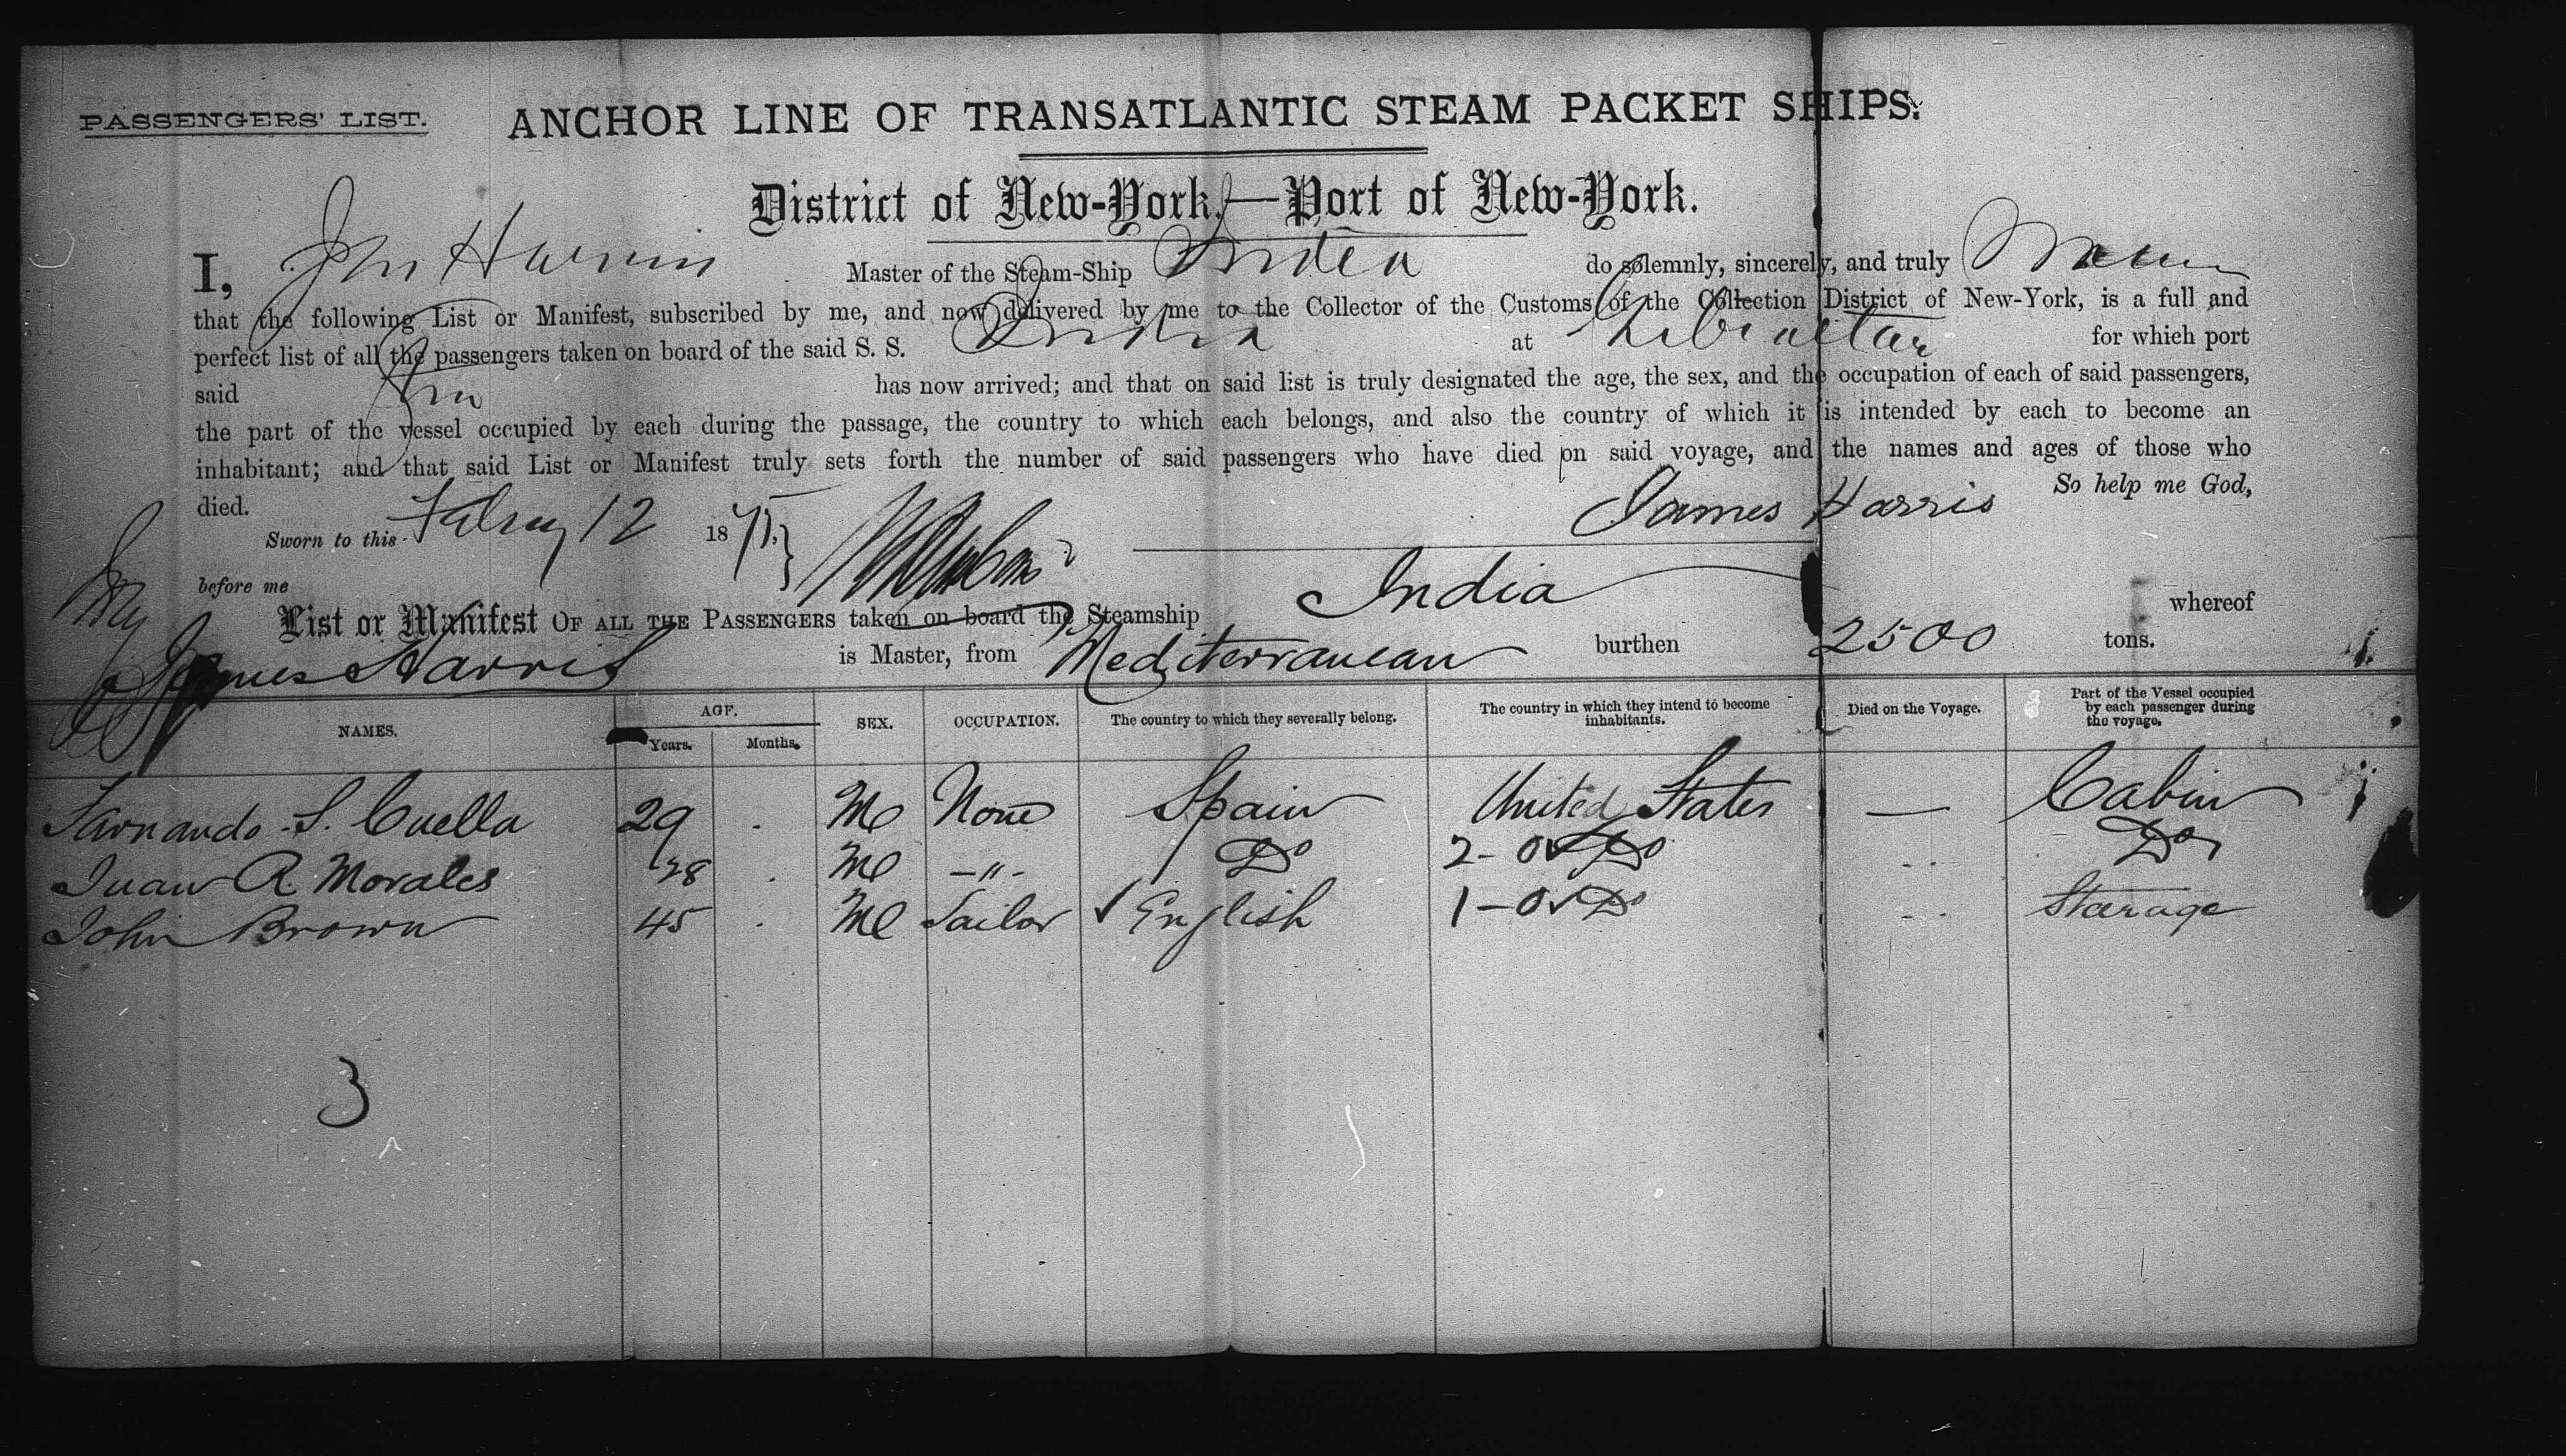 PASSENGERS' LIST.
ANCHOR LINE OF TRANSATLANTIC STEAM PACKET SHIPS.
District of New-York,—Port of New-York.
I, Master of the Steam-Ship India do solemnly, sincerely, and truly
that the following List or Manifest, subscribed by me, and now delivered by me to the Collector of the Customs of the Collection District of New-York, is a full and
perfect list of all the passengers taken on board of the said S. S. India at Gibraltar for which port
said has now arrived; and that on said list is truly designated the age, the sex, and the occupation of each of said passengers,
the part of the vessel occupied by each during the passage, the country to which each belongs, and also the country of which it is intended by each to become an
inhabitant; and that said List or Manifest truly sets forth the number of said passengers who have died on said voyage, and the names and ages of those who
died. So help me God,
Sworn to this 12 18 James Harris
before me
List or Manifest OF ALL THE PASSENGERS taken on board the Steamship India whereof
James Harris is Master, from Mediterranean burthen 2500 tons.
NAMES. AGE. Years. Months. SEX. OCCUPATION. The country to which they severally belong. The country in which they intend to become inhabitants. Died on the Voyage. Part of the Vessel occupied by each passenger during the voyage.
Farnando S. Cuella 29 . Ml None Spain United States — Cabin
Juan R. Morales 28 . Ml -"- Do 2-0 ✓ Do - - Do
John Brown 45 . Ml Sailor ✓ English 1-0 ✓ Do - - Starage
3